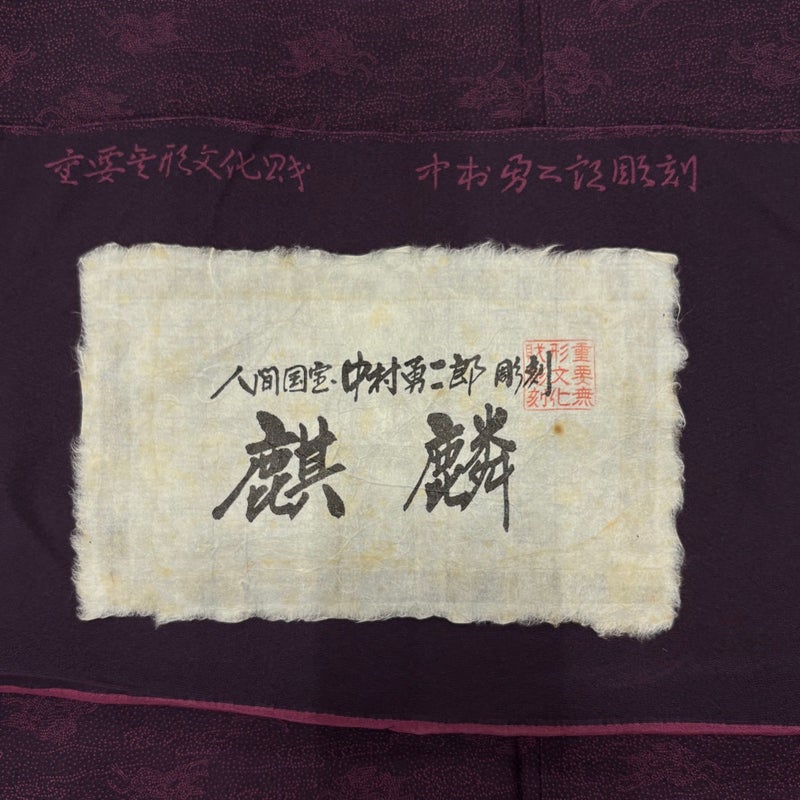 重要無形文化財 中村勇二郎彫刻
人間国宝 中村勇二郎 彫刻
麒麟
重要無
形文化
財彫刻